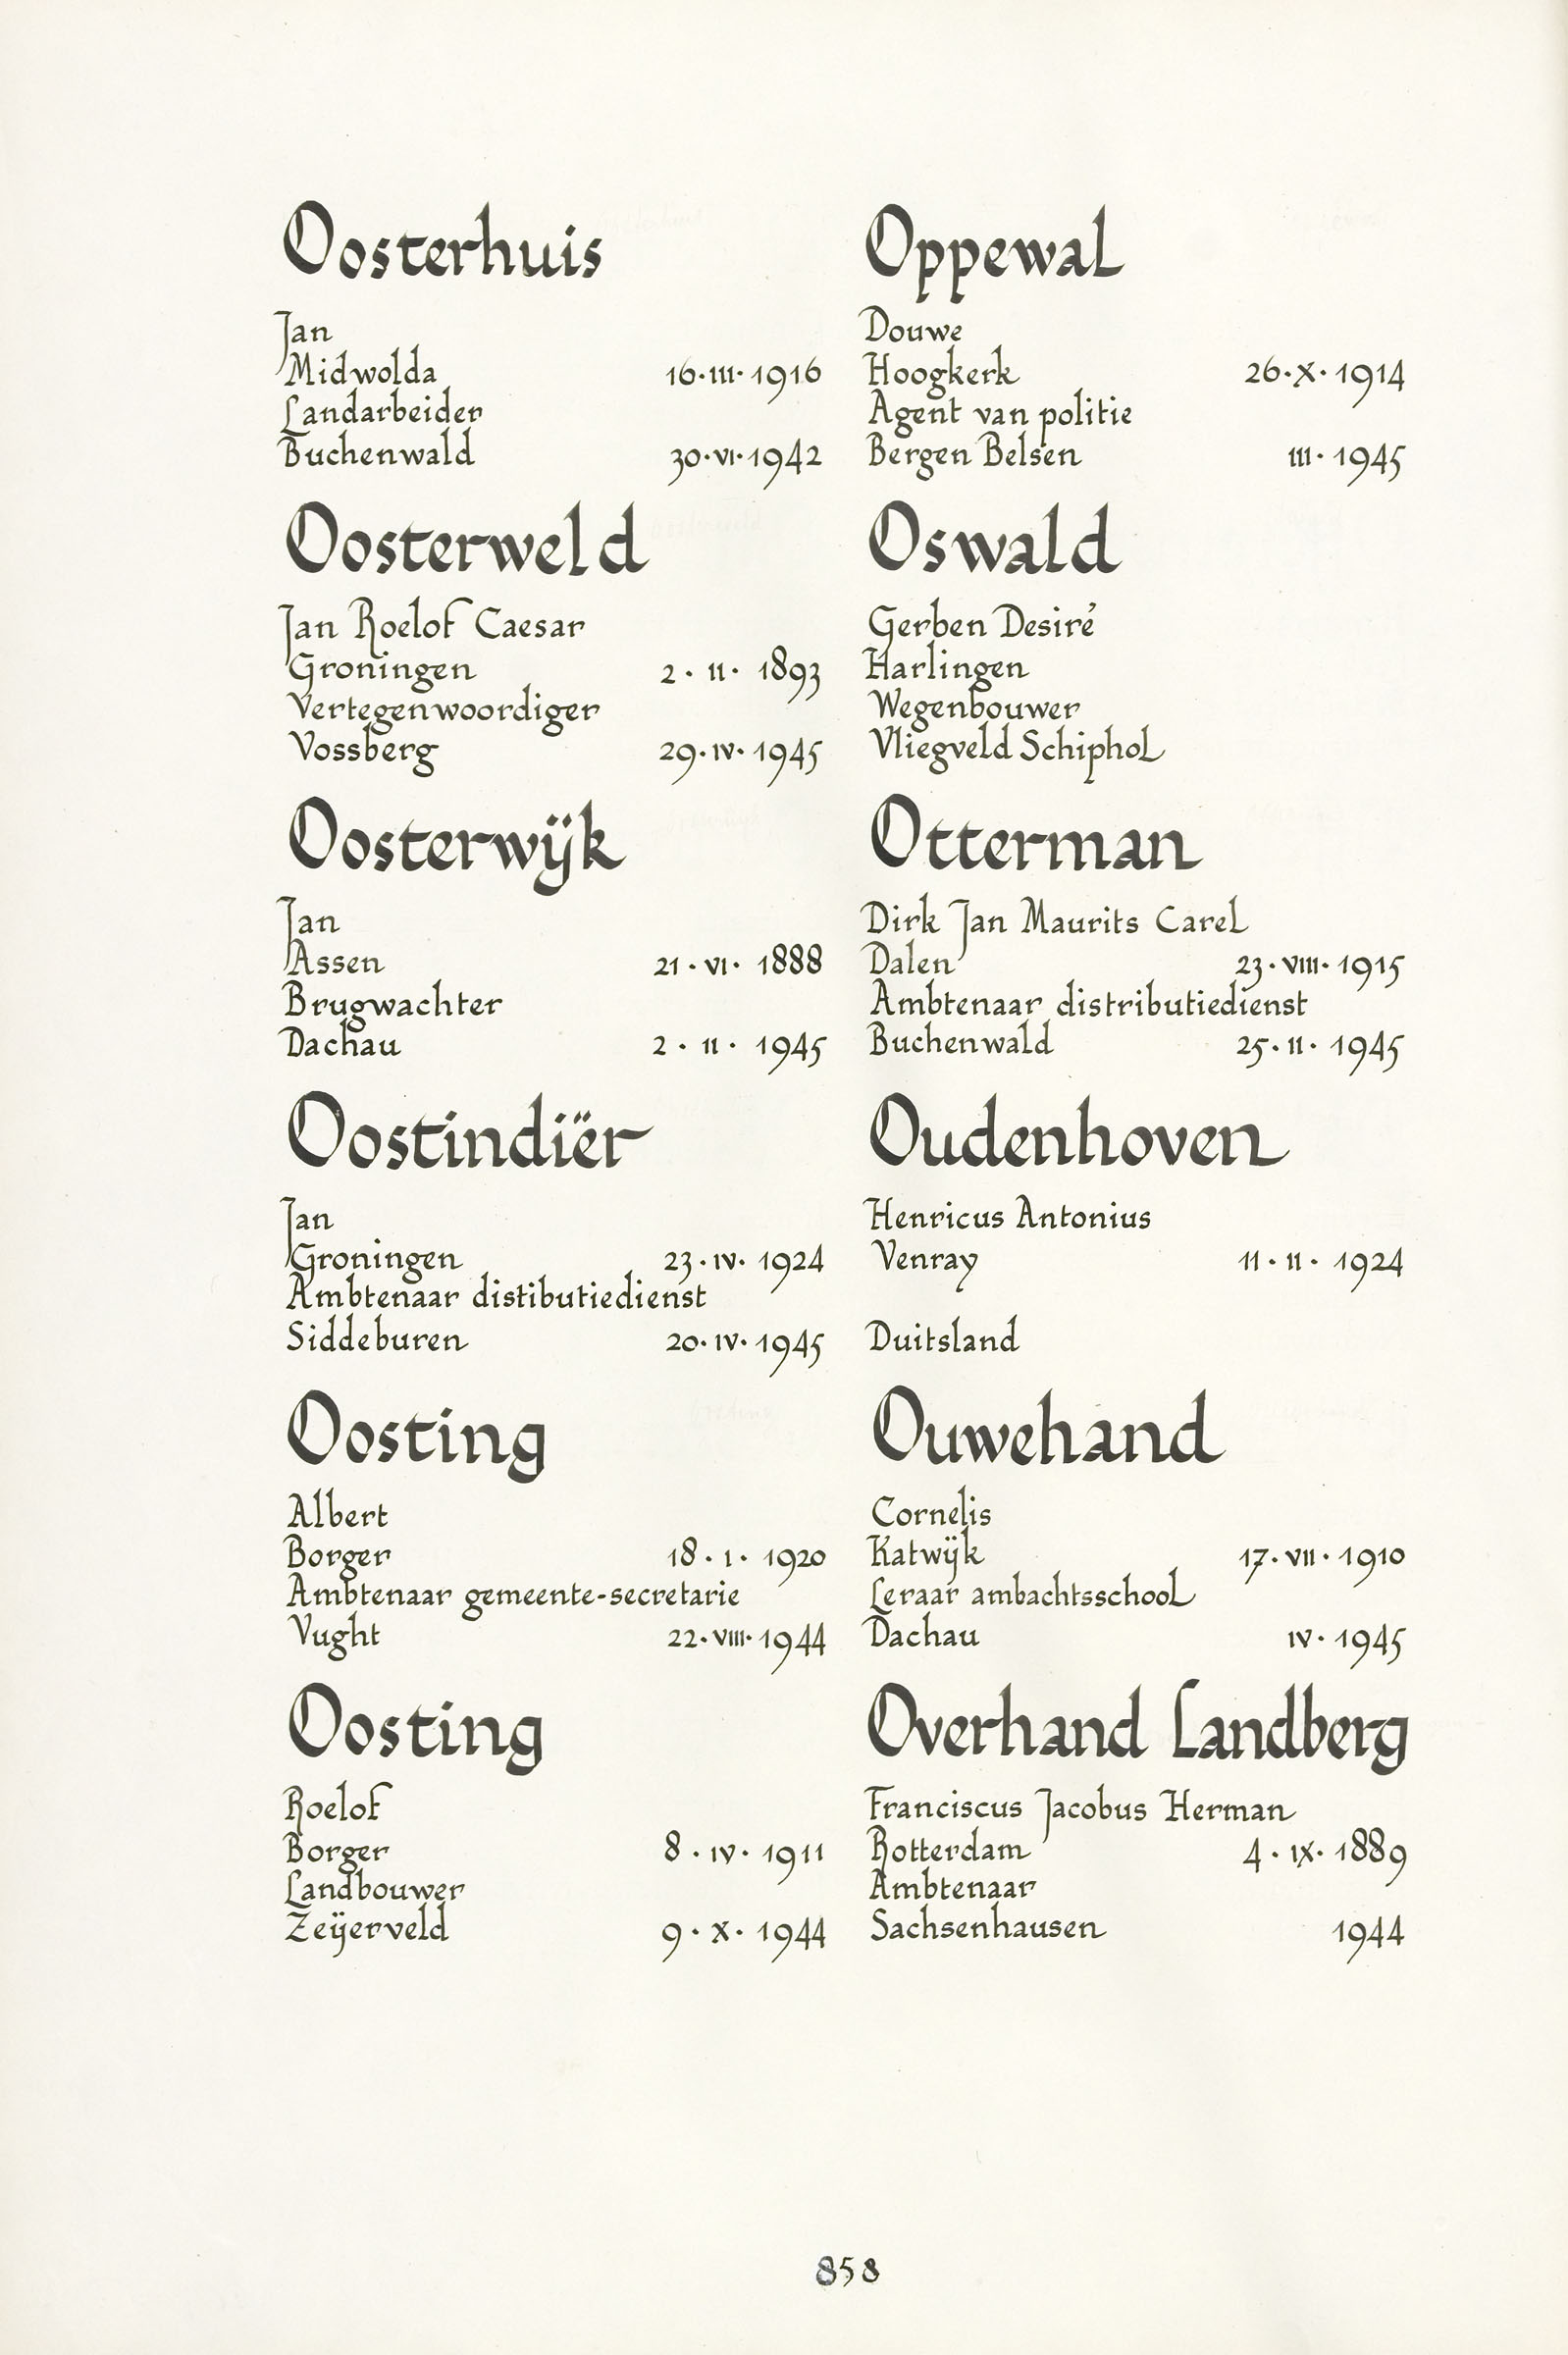 Oosterhuis
Jan
Midwolda 16·III·1916
Landarbeider
Buchenwald 30·VI·1942
Oosterweld
Jan Roelof Caesar
Groningen 2·II·1893
Vertegenwoordiger
Vossberg 29·IV·1945
Oosterwijk
Jan
Assen 21·VI·1888
Brugwachter
Dachau 2·II·1945
Oostindiër
Jan
Groningen 23·IV·1924
Ambtenaar distibutiedienst
Siddeburen 20·IV·1945
Oosting
Albert
Borger 18·I·1920
Ambtenaar gemeente-secretarie
Vught 22·VIII·1944
Oosting
Roelof
Borger 8·IV·1911
Landbouwer
Zeijerveld 9·X·1944
Oppewal
Douwe
Hoogkerk 26·X·1914
Agent van politie
Bergen Belsen III·1945
Oswald
Gerben Desiré
Harlingen
Wegenbouwer
Vliegveld Schiphol
Otterman
Dirk Jan Maurits Carel
Dalen 23·VIII·1915
Ambtenaar distributiedienst
Buchenwald 25·II·1945
Oudenhoven
Henricus Antonius
Venray 11·II·1924
Duitsland
Ouwehand
Cornelis
Katwijk 17·VII·1910
Leraar ambachtsschool
Dachau IV·1945
Overhand Landberg
Franciscus Jacobus Herman
Rotterdam 4·IX·1889
Ambtenaar
Sachsenhausen 1944
858